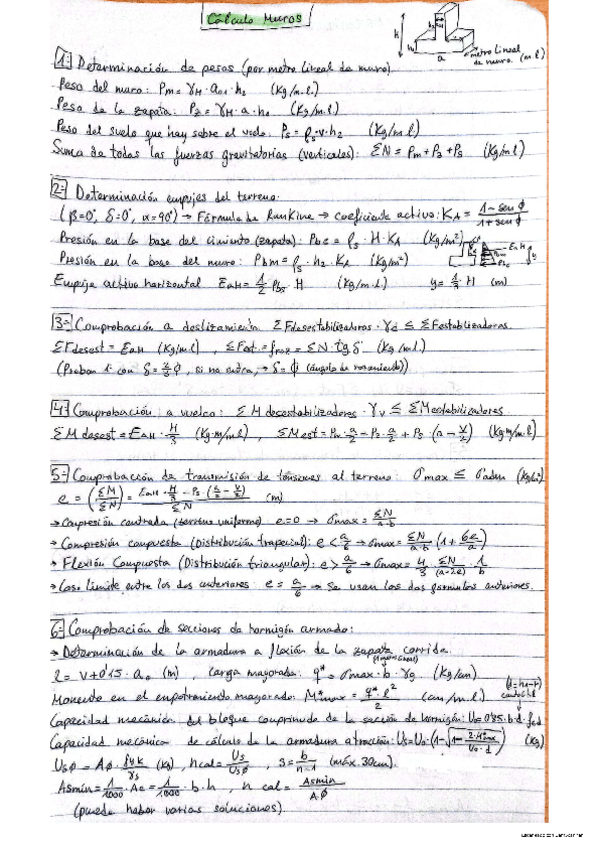 Cálculo Muros
h
h₀
a
metro lineal de muro (m.l)
1- Determinación de pesos (por metro lineal de muro)
Peso del muro: Pm = γH · a₀ · h₂ (Kg/m.l.)
Peso de la zapata: Pz = γH · a · h₀ (Kg/m.l)
Peso del suelo que hay sobre el vuelo: Ps = ρs · v · h₂ (Kg/m.l)
Suma de todas las fuerzas gravitatorias (verticales): ΣN = Pm + Pz + Ps (Kg/m.l)
2- Determinación empujes del terreno:
(β=0°, δ=0°, α=90°) → Fórmula de Rankine → coeficiente activo: KA = (1 - sen ϕ)/(1 + sen ϕ)
Presión en la base del cimiento (zapata): Pbc = ρs · H · KA (Kg/m²)
Presión en la base del muro: Pbm = ρs · h₂ · KA (Kg/m²)
Empuje activo horizontal EaH = 1/2 Pbc · H (Kg/m.l.) y = 1/3 · H (m)
3- Comprobación a deslizamiento: ΣFdesestabilizadoras · γd ≤ ΣFestabilizadoras
ΣFdesest = EaH (Kg/m.l) , ΣFest = froz = ΣN · tg δ (Kg/m.l)
(Probar 1º con δ = 2/3 ϕ, si no cumple, → δ = ϕ (ángulo de rozamiento))
4- Comprobación a vuelco: ΣM desestabilizadores · γv ≤ ΣMestabilizadores
ΣM desest = EaH · H/3 (Kg·m/m.l) , ΣM est = Pm · a/2 + Pz · a/2 + Ps · (a - v/2) (Kg·m/m.l)
5- Comprobación de transmisión de tensiones al terreno: σmax ≤ σadm (Kg/m²)
e = (ΣM/ΣN) = (EaH · H/3 - Ps · (a/2 - v/2))/ΣN (m)
→ Compresión centrada (terreno uniforme) e = 0 → σmax = ΣN/(a·b)
→ Compresión compuesta (Distribución trapecial): e < a/6 → σmax = ΣN/(a·b) (1 + 6e/a)
→ Flexión Compuesta (Distribución triangular): e > a/6 → σmax = 4/3 · ΣN/(a-2e) · 1/b
→ Caso límite entre los dos anteriores: e = a/6 → Se usan las dos fórmulas anteriores.
6- Comprobación de secciones de hormigón armado:
→ Determinación de la armadura a flexión de la zapata corrida.
l = v + 0'15 · a₀ (m) , carga mayorada: q* = σmax · b · γg (Kg/m)
Momento en el empotramiento mayorado: M*max = q* · l²/2
Capacidad mecánica del bloque comprimido de la sección de hormigón: U₀ = 0'85 · b · d · fcd
Capacidad mecánica de cálculo de la armadura a tracción: Us = U₀ · (1 - √(1 - 2·M*max/(U₀·d))) (Kg)
Usϕ = Aϕ · fyk/γs (Kg) , n cal = Us/Usϕ , S = b/(n-1) (máx. 30cm).
Asmin = 1/1000 · Ac = 1/1000 · b · h , n cal = Asmin/Aϕ
(puede haber varias soluciones).